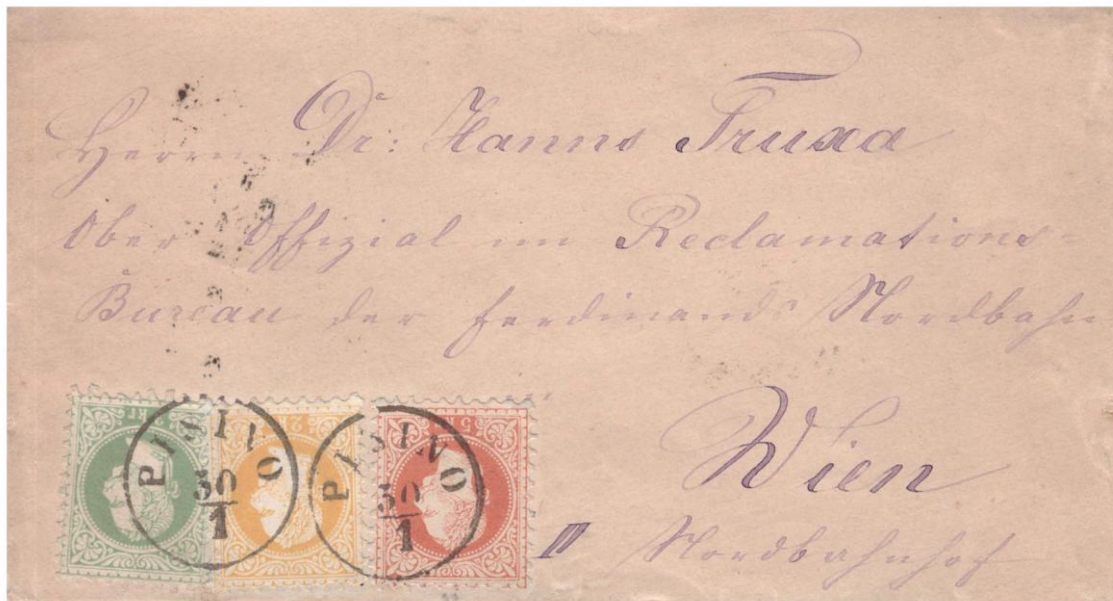 Herrn Dr: Hanns Truxa
Ober Offizial im Reclamations=
Bureau der Ferdinands Nordbahn
Wien
III Nordbahnhof
3 KR
2 K
5
PISINO
30
1
PISINO
30
1